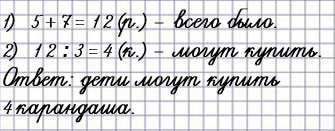 1) 5+7=12(р.) – всего было.
2) 12:3=4(к.) – могут купить.
Ответ: дети могут купить
4 карандаша.